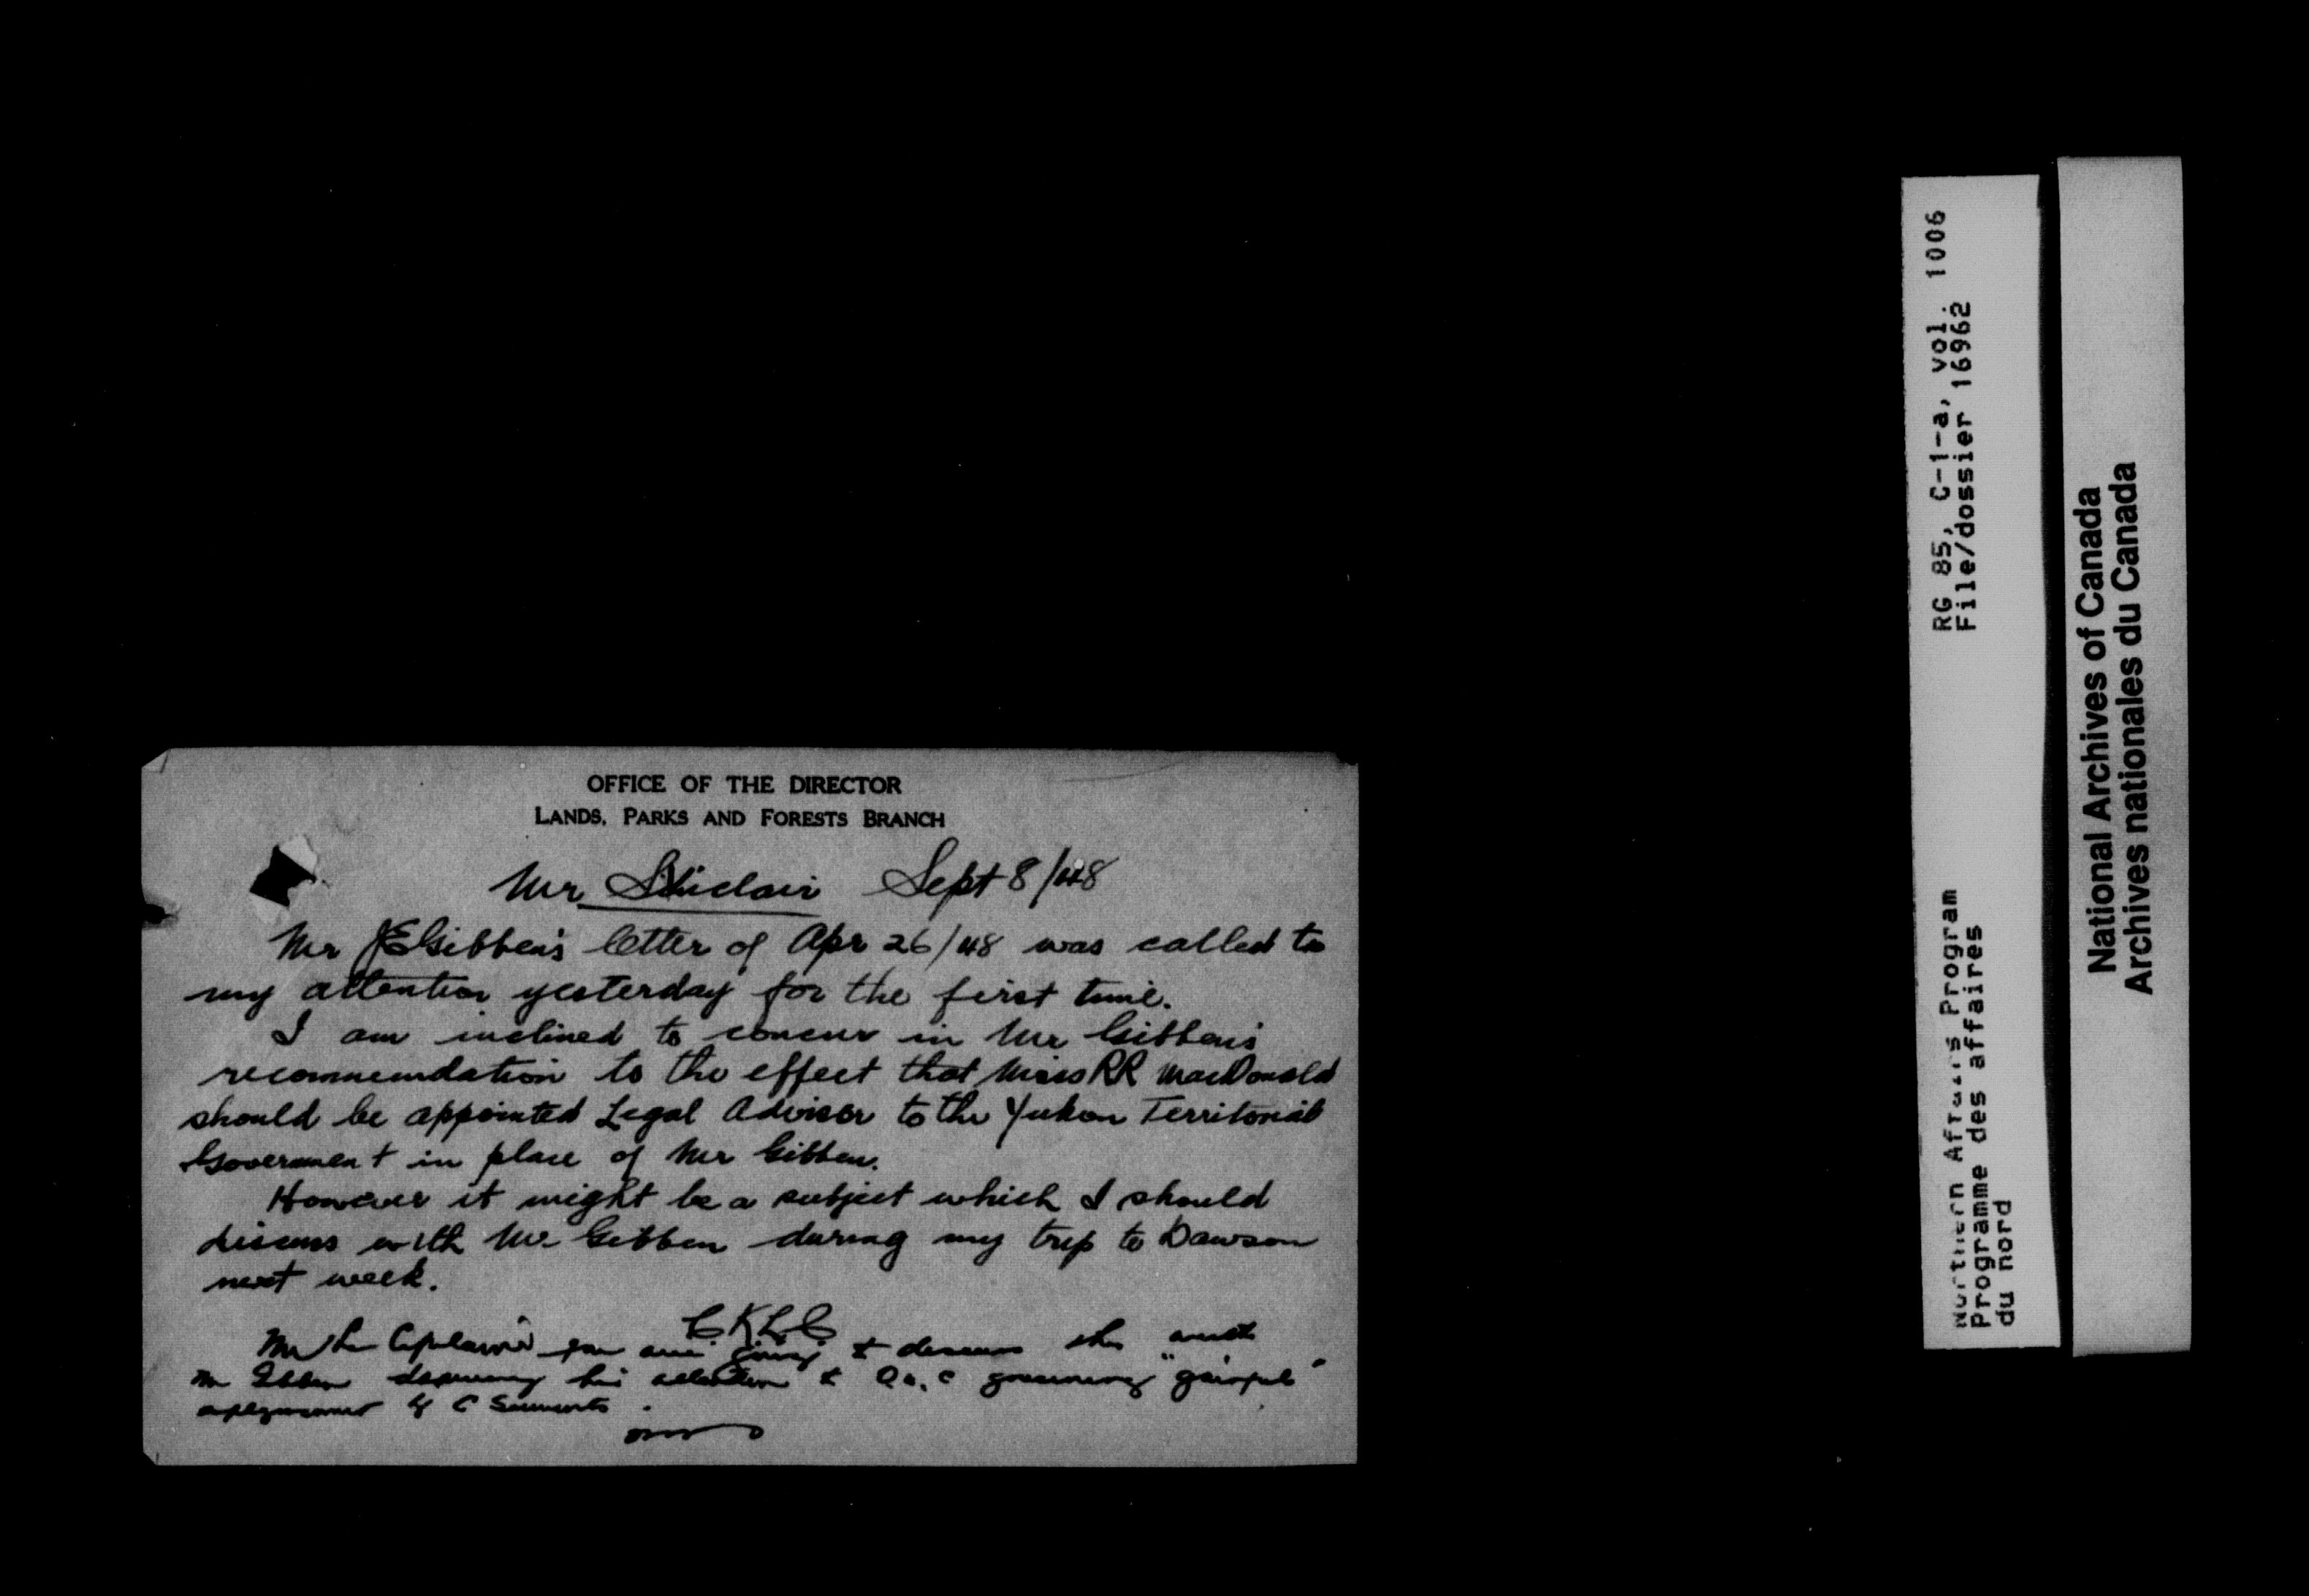 OFFICE OF THE DIRECTOR
LANDS, PARKS AND FORESTS BRANCH
Mr Sinclair Sept 8/48
Mr J E Gibben's letter of Apr 26/48 was called to
my attention yesterday for the first time.
I am inclined to concur in Mr Gibben's
recommendation to the effect that Miss RR MacDonald
should be appointed Legal Adviser to the Yukon Territorial
Government in place of Mr Gibben.
However it might be a subject which I should
discuss with Mr Gibben during my trip to Dawson
next week.
C.K.LeC.
you are going to discuss this
Mr Gibben his attention to governing "gainful"
RG 85, C-1-a, vol. 1006
File/dossier 16962
Northern Affairs Program
Programme des affaires
du nord
National Archives of Canada
Archives nationales du Canada